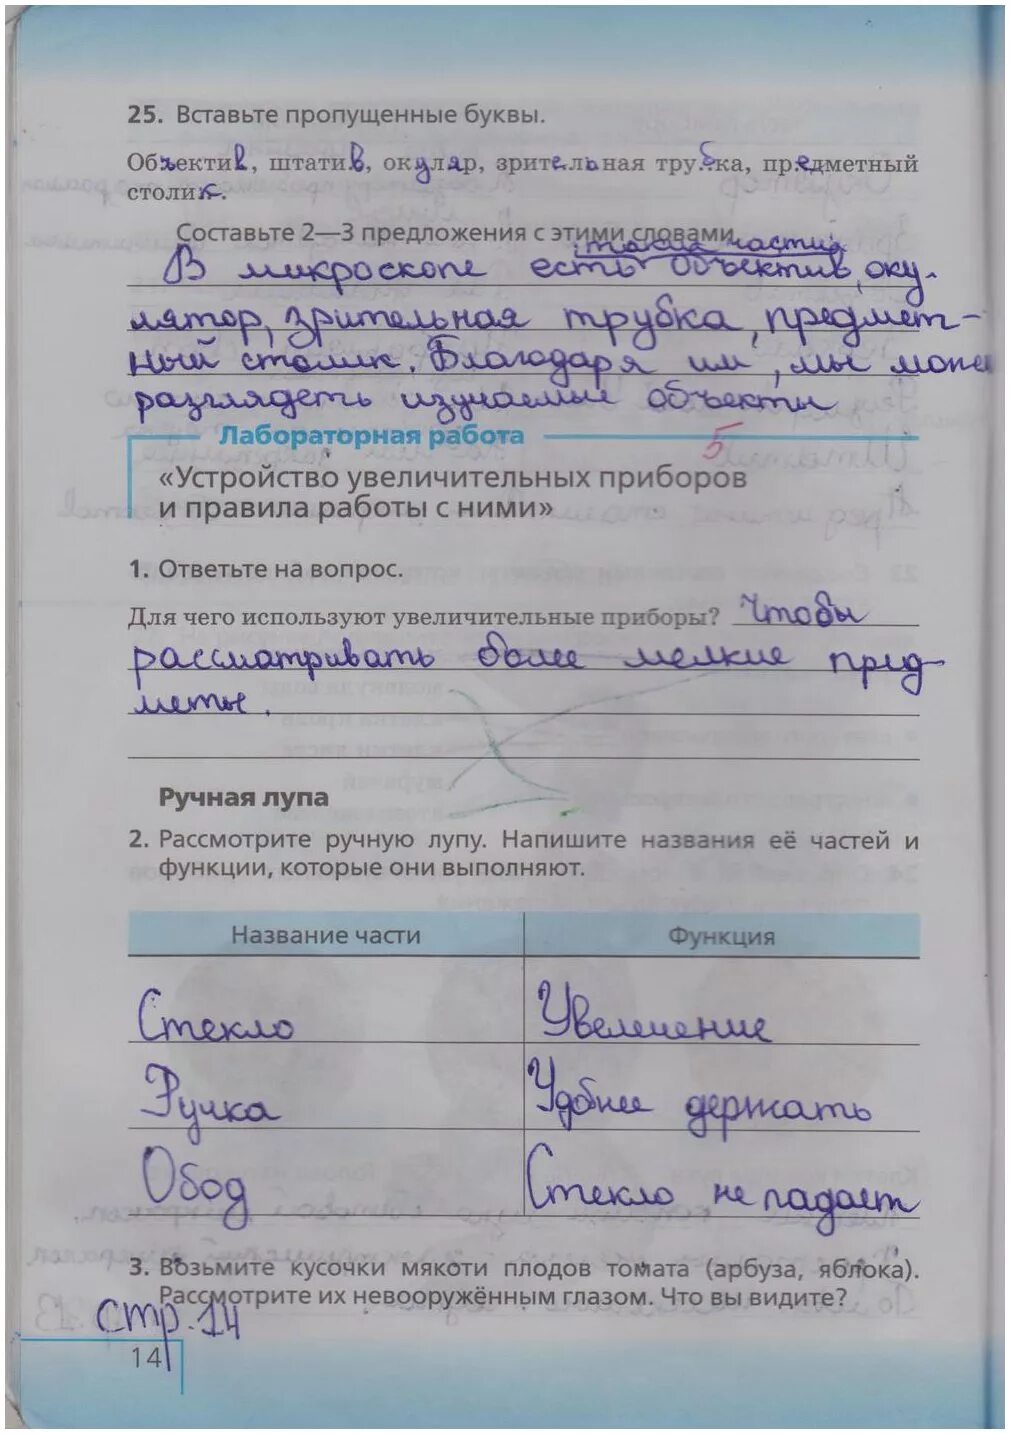 25. Вставьте пропущенные буквы.
Объектив, штатив, окуляр, зрительная трубка, предметный
столик.
Составьте 2—3 предложения с этими словами.
такие части
В микроскопе есть объектив, оку-
лятор, зрительная трубка, предмет-
ный столик. Благодаря им, мы може
разглядеть изучаемые объекты
Лабораторная работа
5
«Устройство увеличительных приборов
и правила работы с ними»
1. Ответьте на вопрос.
Для чего используют увеличительные приборы? Чтобы
рассматривать более мелкие пред-
меты.
Ручная лупа
2. Рассмотрите ручную лупу. Напишите названия её частей и
функции, которые они выполняют.
Название части Функция
Стекло Увеличение
Ручка Удобнее держать
Обод Стекло не падает
3. Возьмите кусочки мякоти плодов томата (арбуза, яблока).
Рассмотрите их невооружённым глазом. Что вы видите?
стр. 14
14